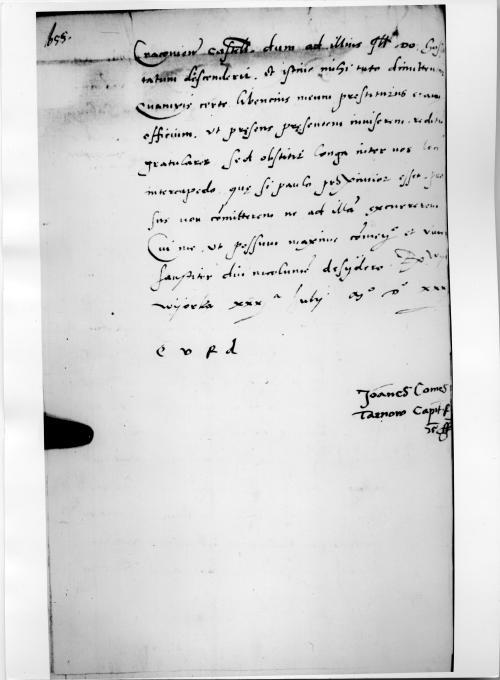 655.
Cracovien Castell. dum ad illius Ill Do
tatum discenderit. et istinc mihi tuto dimittetur
Quamvis certe libencius meum prestiturus eram
officium, ut presens presentem inviserem, reditu
gratularer sed obstitit longa inter nos
intercapedo, que si paulo proximior esset, pro
sus non committerem ne ad illa excurrerem
Cui me, ut possum maxime comen et
faustiter diu incolumem desydero.
wijorka xxx a July Mo Do xxx
E V R d
Joannes Comes
Tarnow Capit